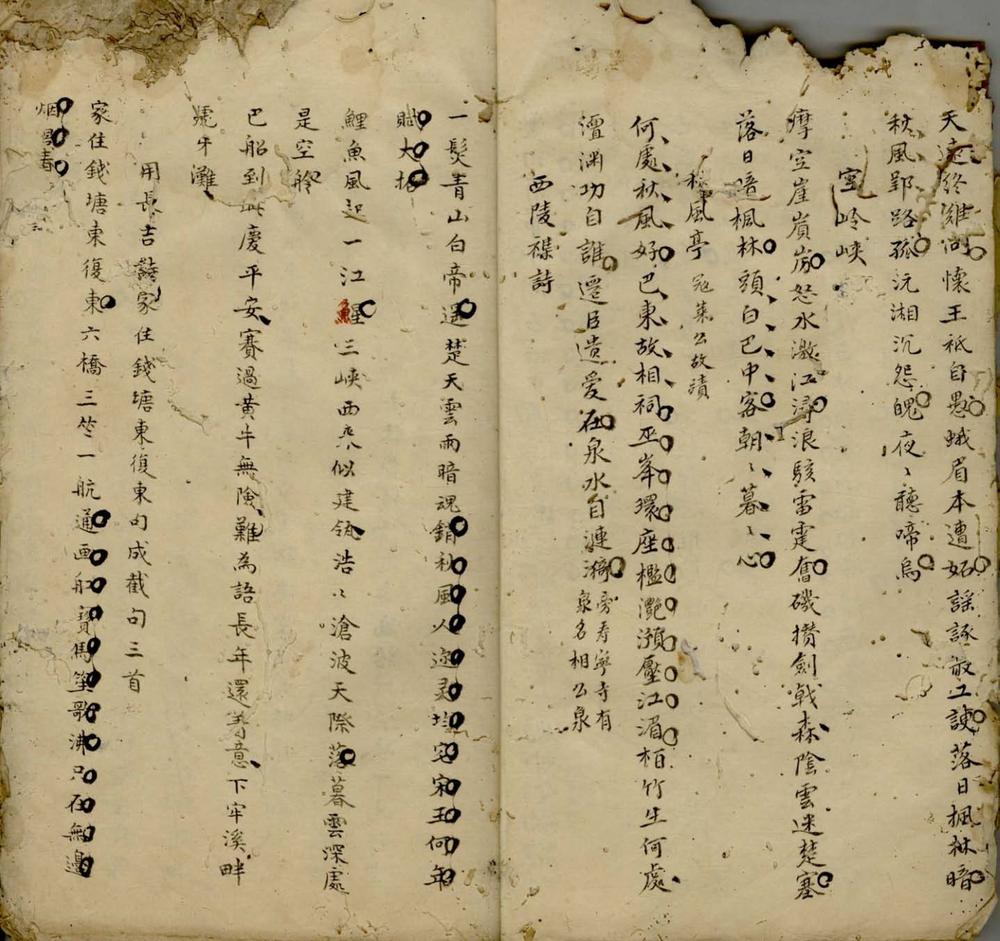 天遠終難問懷王祗自愚蛾眉本遭妬謡諑敢工諛落日楓林暗
秋風郢路孤沅湘沉怨魄夜〻聽啼烏
空岭峽
摩空崖崱屴怒水激江潯浪駭雷霆奮磯攢劍戟森陰雲迷楚塞
落日暗楓林頭白巴中客朝〻暮〻心
秋風亭 冦萊公故蹟
何處秋風好巴東故相祠巫峯環座檻灧澦壓江湄栢竹生何處
澶渊功自誰遷臣遺愛在泉水自漣漪 旁有寧寺有
泉名相公泉
西陵襍詩
一髮青山白帝遥楚天雲雨暗魂銷秋風人迹灵均宅宋玉何年
賦大招
鯉魚風起一江鯹三峽西來似建瓴浩〻滄波天際落暮雲深處
是空舲
巴船到此慶平安賽過黄牛無險難為語長年還着意下牢溪畔
獠牙灘
用長吉詩家住錢塘東復東句成截句三首
家住錢塘東復東六橋三竺一航通画船寳馬笙歌沸只在無邊
烟景春